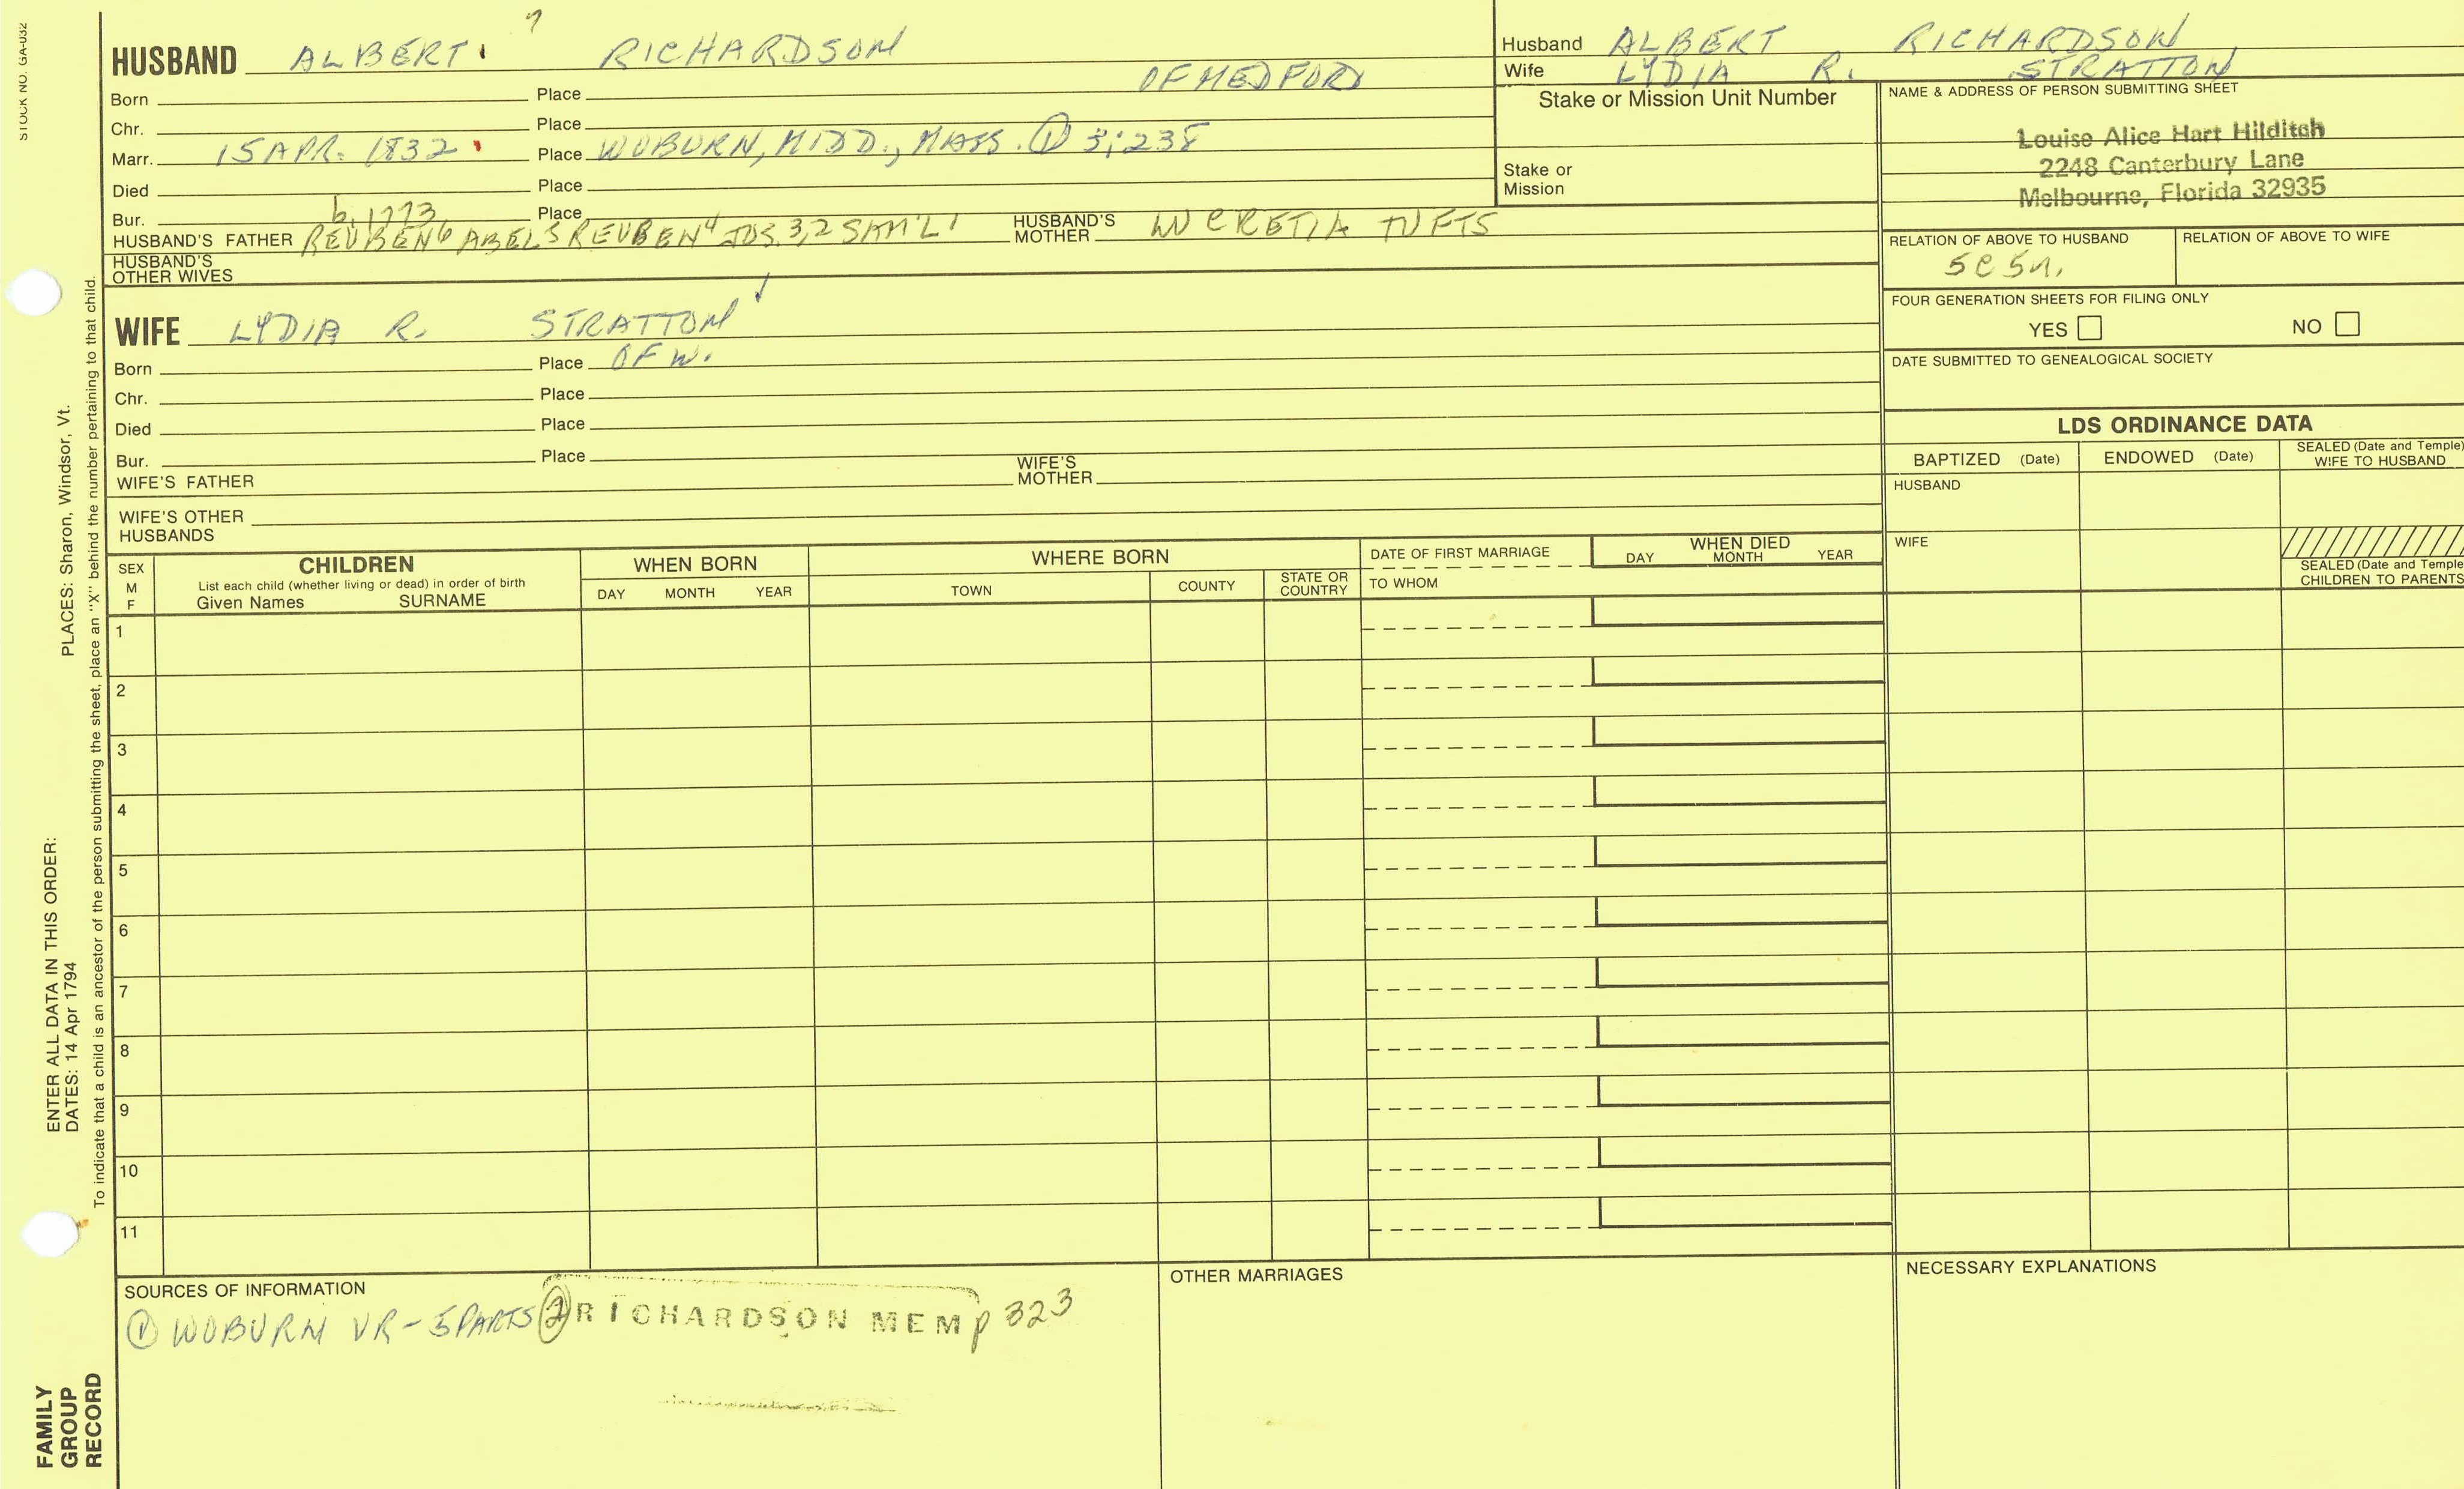 STOCK NO. GA-032
7
HUSBAND ALBERT RICHARDSON
Husband ALBERT RICHARDSON
Wife LYDIA R. STRATTON
Born Place OF MEDFORD
Chr. Place
Marr. 15 APR. 1832 Place WOBURN, MIDD., MASS. ① 3:238
Died Place
Bur. Place
b. 1773
HUSBAND'S FATHER REUBEN6 ABEL5 REUBEN4 JOS.3,2 SAM'L1 HUSBAND'S MOTHER LUCRETIA TUFTS
HUSBAND'S OTHER WIVES
Stake or Mission Unit Number
Stake or Mission
NAME & ADDRESS OF PERSON SUBMITTING SHEET
Louise Alice Hart Hilditch
2248 Canterbury Lane
Melbourne, Florida 32935
RELATION OF ABOVE TO HUSBAND RELATION OF ABOVE TO WIFE
5C5R.
FOUR GENERATION SHEETS FOR FILING ONLY
YES NO
DATE SUBMITTED TO GENEALOGICAL SOCIETY
WIFE LYDIA R. STRATTON
Born Place OF W.
Chr. Place
Died Place
Bur. Place
WIFE'S FATHER WIFE'S MOTHER
WIFE'S OTHER HUSBANDS
LDS ORDINANCE DATA
BAPTIZED (Date) ENDOWED (Date) SEALED (Date and Temple) WIFE TO HUSBAND
HUSBAND
WIFE
SEALED (Date and Temple) CHILDREN TO PARENTS
SEX M F
CHILDREN
List each child (whether living or dead) in order of birth
Given Names SURNAME
WHEN BORN
DAY MONTH YEAR
WHERE BORN
TOWN COUNTY STATE OR COUNTRY
DATE OF FIRST MARRIAGE
TO WHOM
WHEN DIED
DAY MONTH YEAR
1
2
3
4
5
6
7
8
9
10
11
SOURCES OF INFORMATION
① WOBURN VR - 5 PARTS ② RICHARDSON MEM p 323
OTHER MARRIAGES
NECESSARY EXPLANATIONS
PLACES: Sharon, Windsor, Vt.
ENTER ALL DATA IN THIS ORDER:
DATES: 14 Apr 1794
To indicate that a child is an ancestor of the person submitting the sheet, place an "X" behind the number pertaining to that child.
FAMILY
GROUP
RECORD